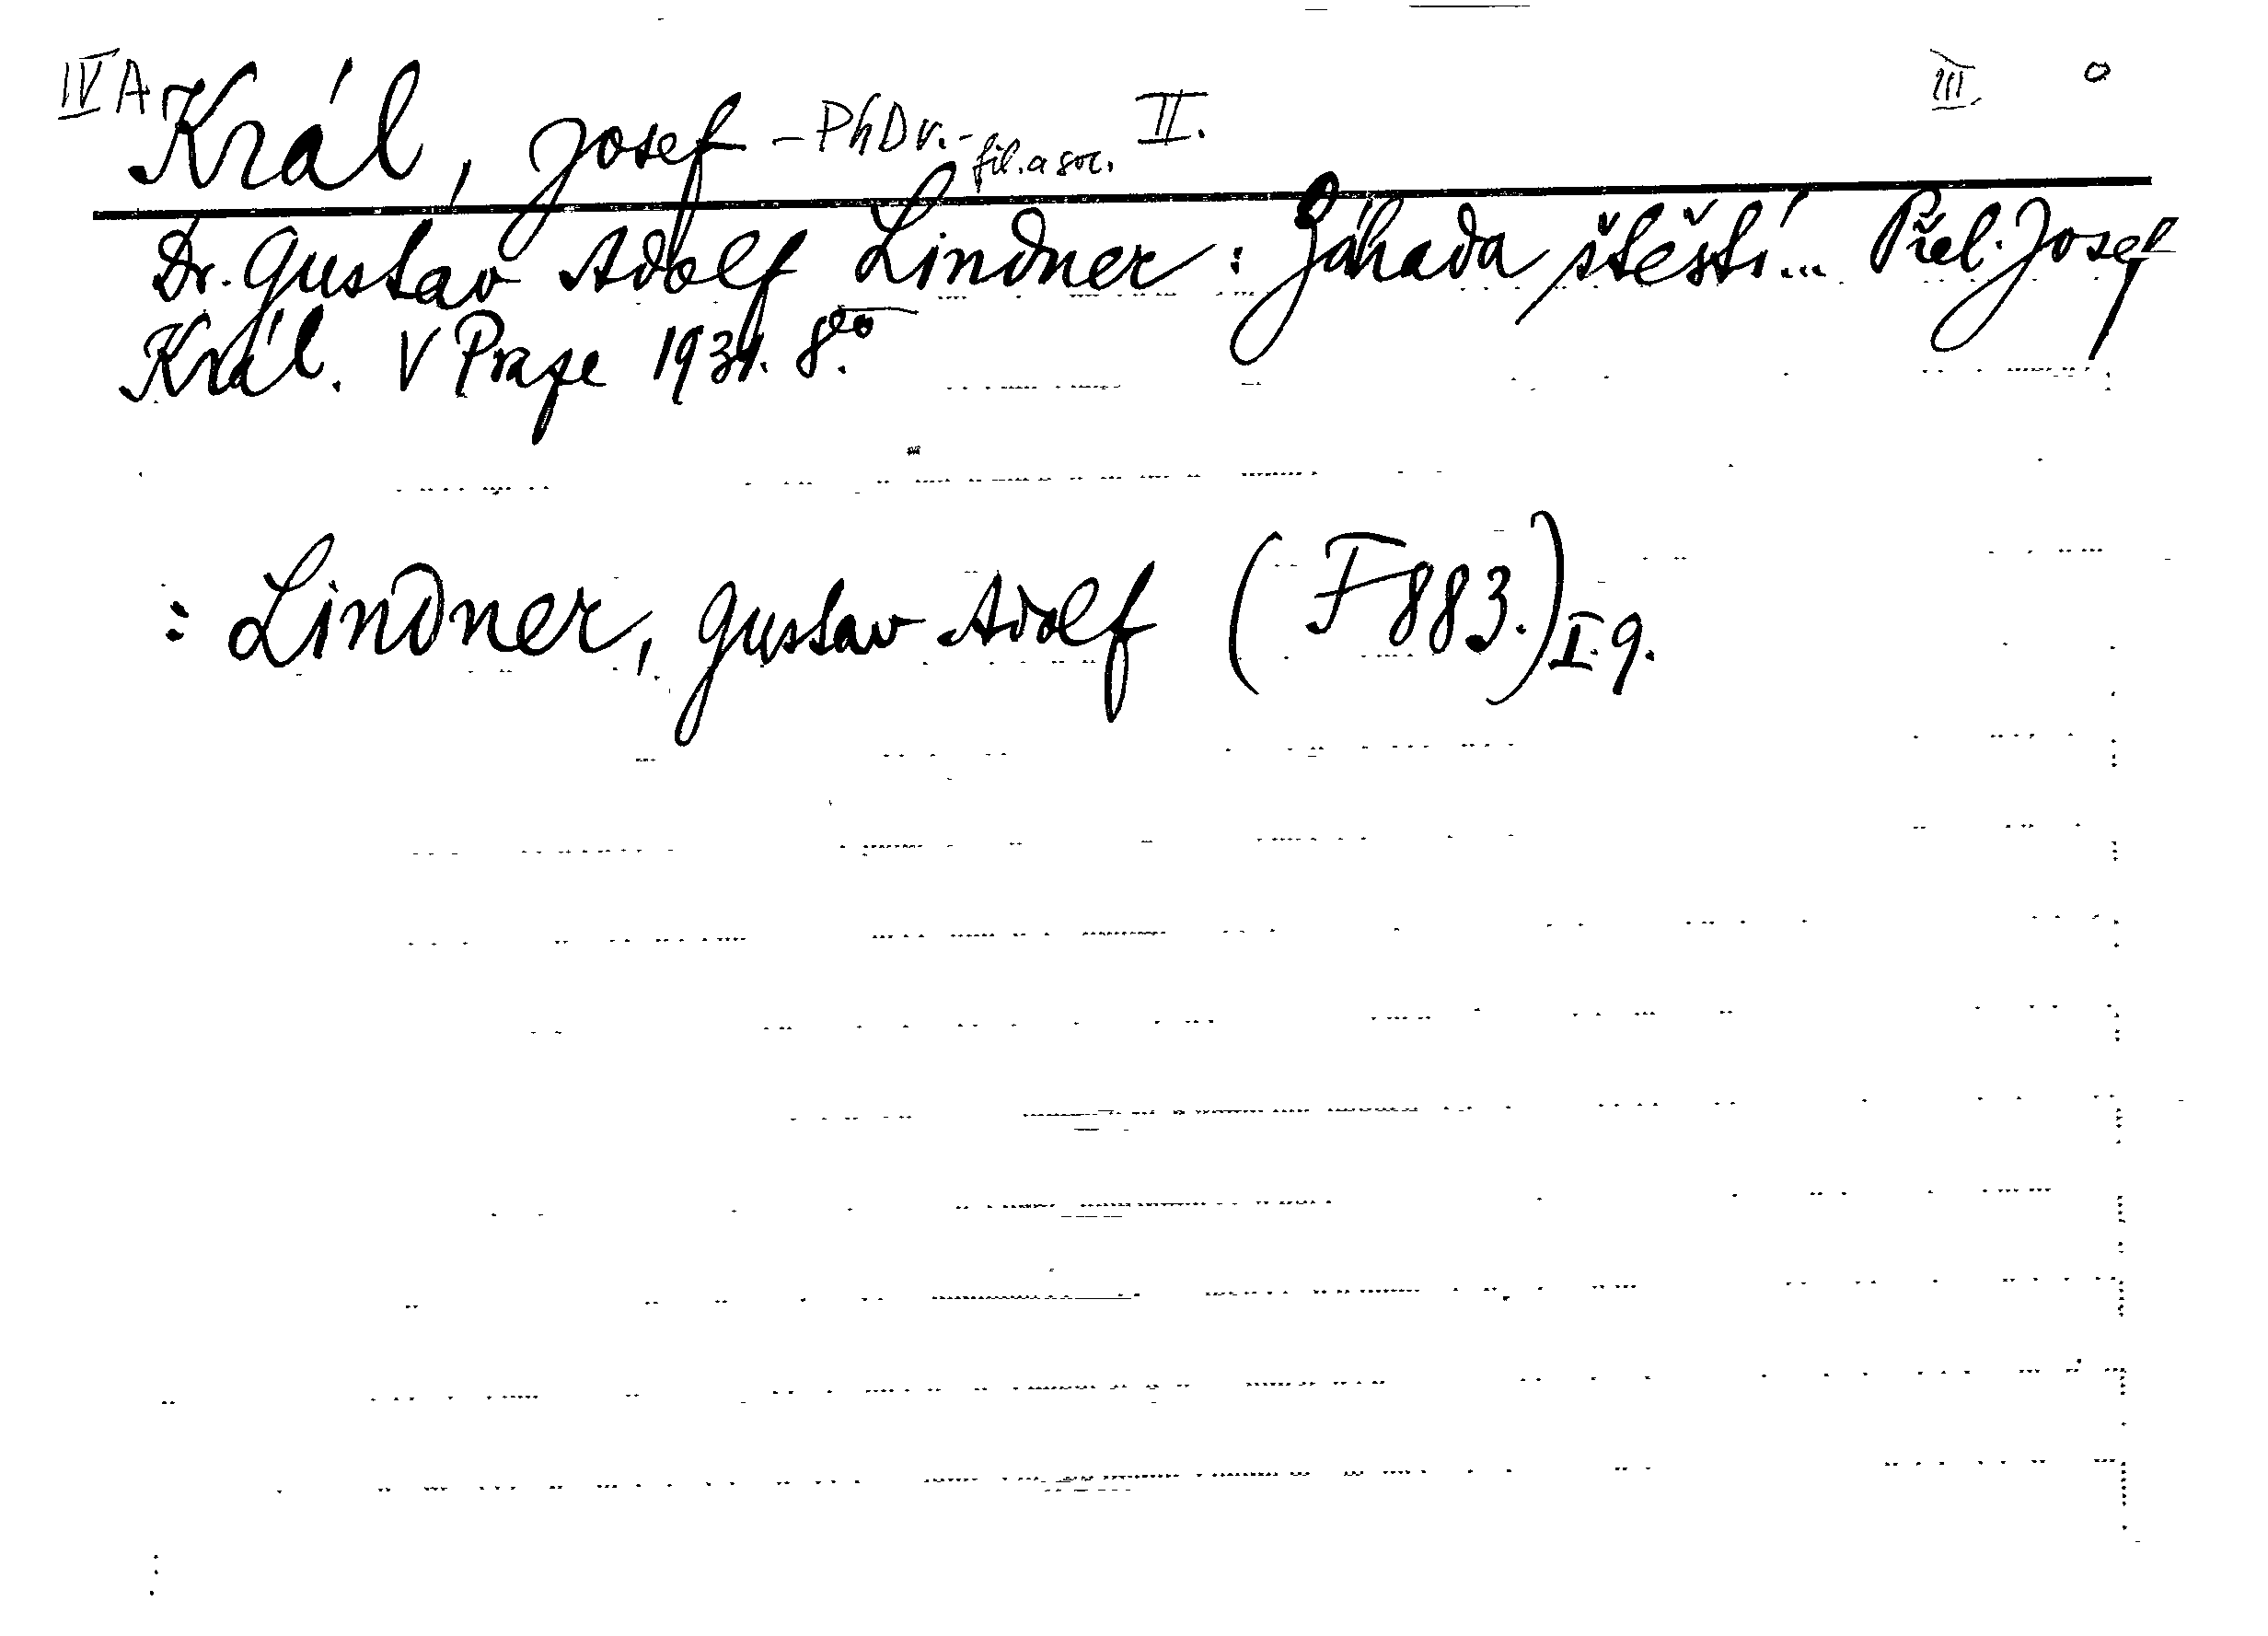 IV A Král, Josef - PhDr. - fil. a soc. II. III. o
Dr. Gustav Adolf Lindner: Záhada štěstí... Přel. Josef
Král. V Praze 1931. 8°.
: Lindner, Gustav Adolf (F 883.) I. 9.